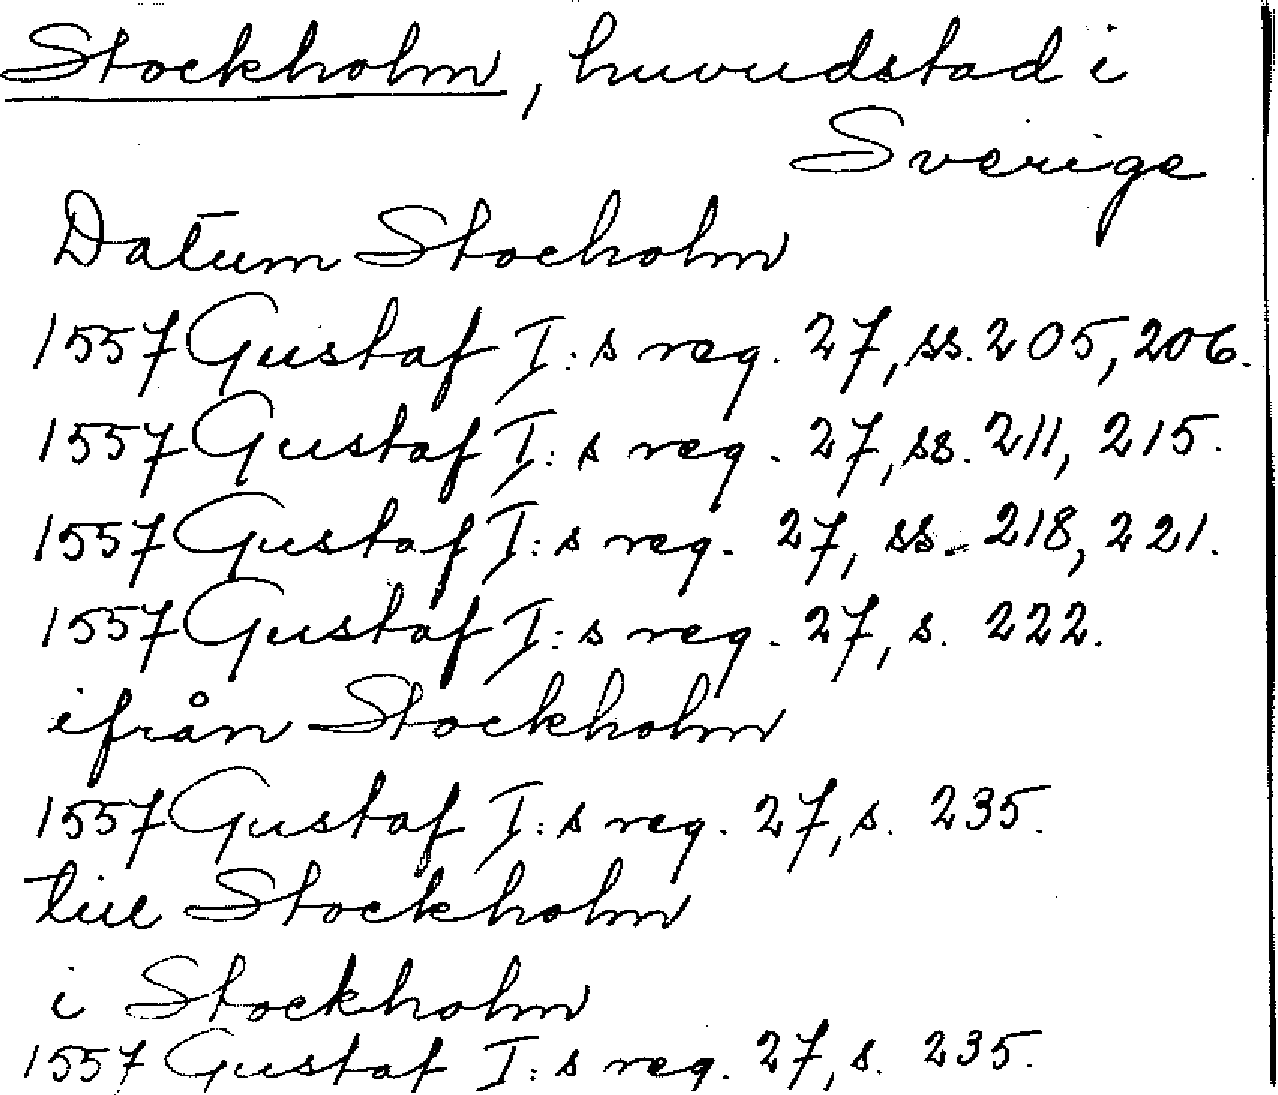 Stockholm, huvudstad i
Sverige
Datum Stocholm
1557 Gustaf I:s reg. 27, ss. 205, 206.
1557 Gustaf I:s reg. 27, ss. 211, 215.
1557 Gustaf I:s reg. 27, ss. 218, 221.
1557 Gustaf I:s reg. 27, s. 222.
ifrån Stockholm
1557 Gustaf I:s reg. 27, s. 235.
till Stockholm
i Stockholm
1557 Gustaf I:s reg. 27, s. 235.